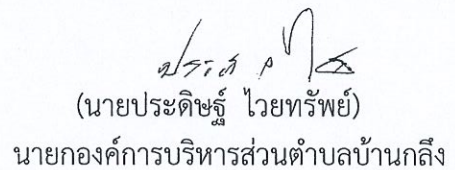 (นายประดิษฐ์ ไวยทรัพย์)
นายกองค์การบริหารส่วนตำบลบ้านกลึง